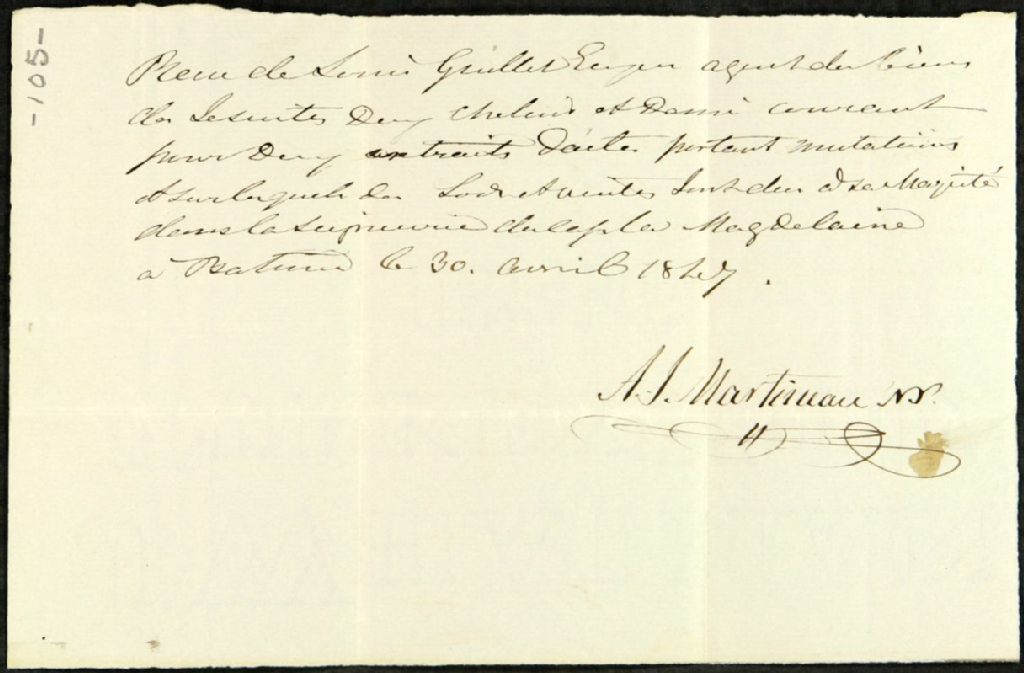 -105-
Recu de Louis Guillet Ecuyer agent des biens
des Jesuites Deux chelins et Demi courant
pour Deux extraits d'actes portant mutations
et sur lesquels des Lods et ventes sont dus à sa Majesté
dans la seigneurie du cap la Magdelaine
a Batiscan le 30. avril 1847.
A. J. Martineau N.P.